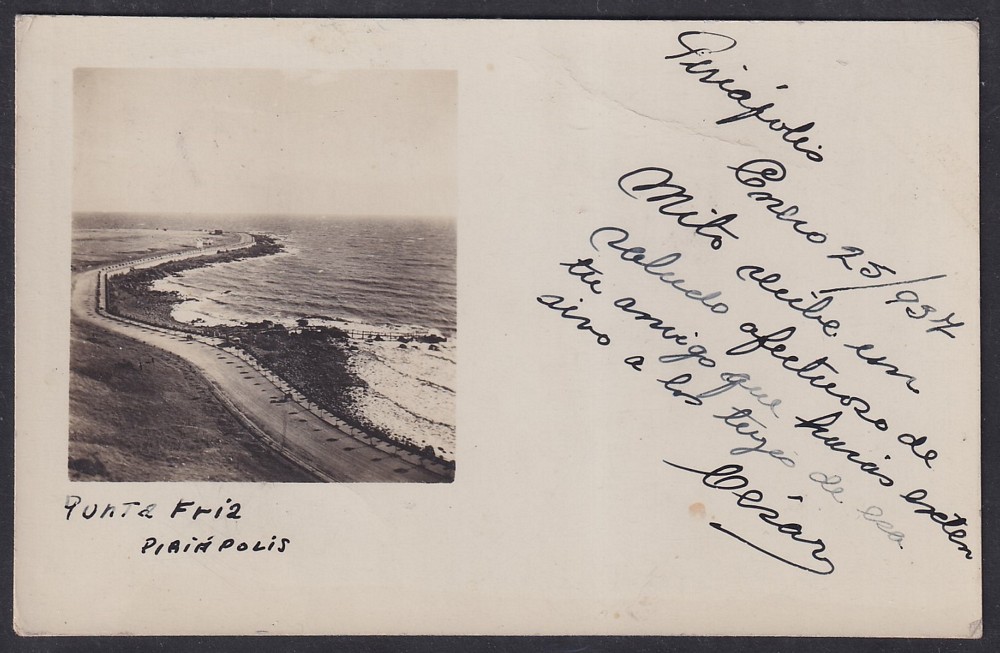 Piriápolis
Enero 25/937
Mito recibe un
saludo afectuoso de
tu amigo que harás exten
sivo a los tuyos de esa
César
Punta Fría
Piriápolis